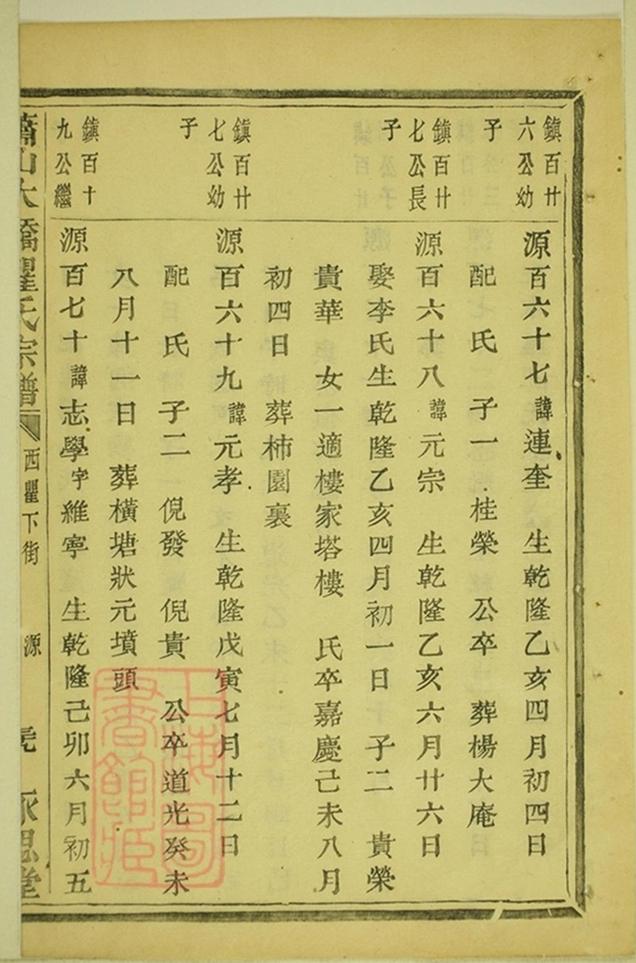 鎮百廿
六公幼
子
源百六十七諱連奎 生乾隆乙亥四月初四日
配 氏 子一 桂榮 公卒 葬楊大庵
鎮百廿
七公長
子
源百六十八諱元宗 生乾隆乙亥六月廿六日
娶李氏生乾隆乙亥四月初一日 子二 貴榮
貴華 女一適樓家塔樓 氏卒嘉慶己未八月
初四日 葬柿園裏
鎮百廿
七公幼
子
源百六十九諱元孝 生乾隆戊寅七月十二日
配 氏 子二 倪發 倪貴 公卒道光癸未
八月十一日 葬橫塘狀元墳頭
鎮百十
九公繼
源百七十諱志學字維寧 生乾隆己卯六月初五
蕭山大橋瞿氏宗譜 西瞿下街 源 永思堂